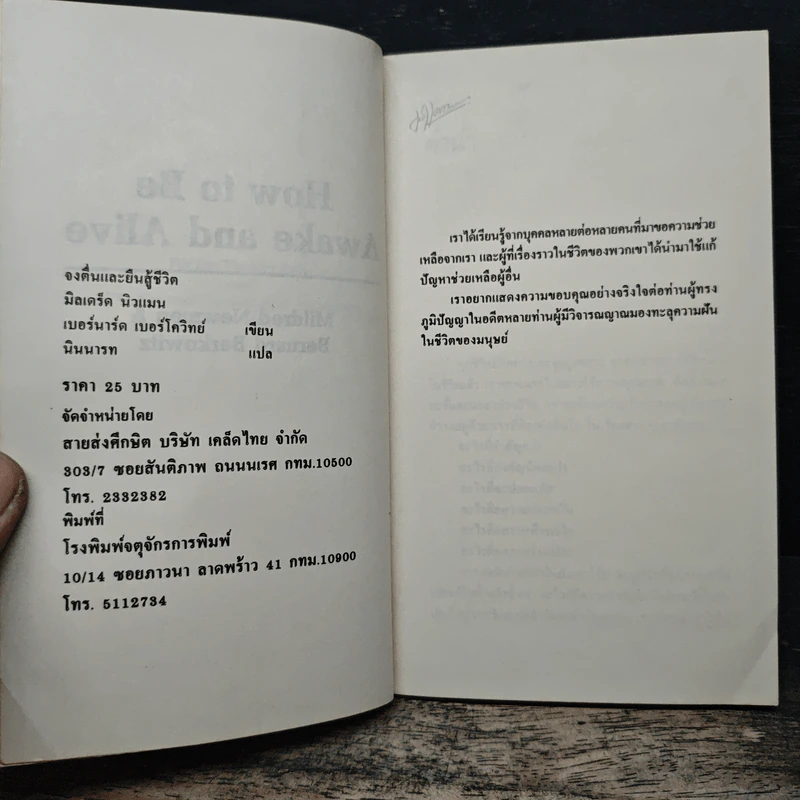 จงตื่นและยืนสู้ชีวิต
มิลเดร็ด นิวแมน
เบอร์นาร์ด เบอร์โควิทย์ เขียน
นินนารท แปล
ราคา 25 บาท
จัดจำหน่ายโดย
สายส่งศึกษิต บริษัท เคล็ดไทย จำกัด
303/7 ซอยสันติภาพ ถนนนเรศ กทม.10500
โทร. 2332382
พิมพ์ที่
โรงพิมพ์จตุจักรการพิมพ์
10/14 ซอยภาวนา ลาดพร้าว 41 กทม.10900
โทร. 5112734
เราได้เรียนรู้จากบุคคลหลายต่อหลายคนที่มาขอความช่วย
เหลือจากเรา และผู้ที่เรื่องราวในชีวิตของพวกเขาได้นำมาใช้แก้
ปัญหาช่วยเหลือผู้อื่น
เราอยากแสดงความขอบคุณอย่างจริงใจต่อท่านผู้ทรง
ภูมิปัญญาในอดีตหลายท่านผู้มีวิจารณญาณมองทะลุความฝัน
ในชีวิตของมนุษย์
How to Be
Awake and Alive
Mildred Newman &
Bernard Berkowitz